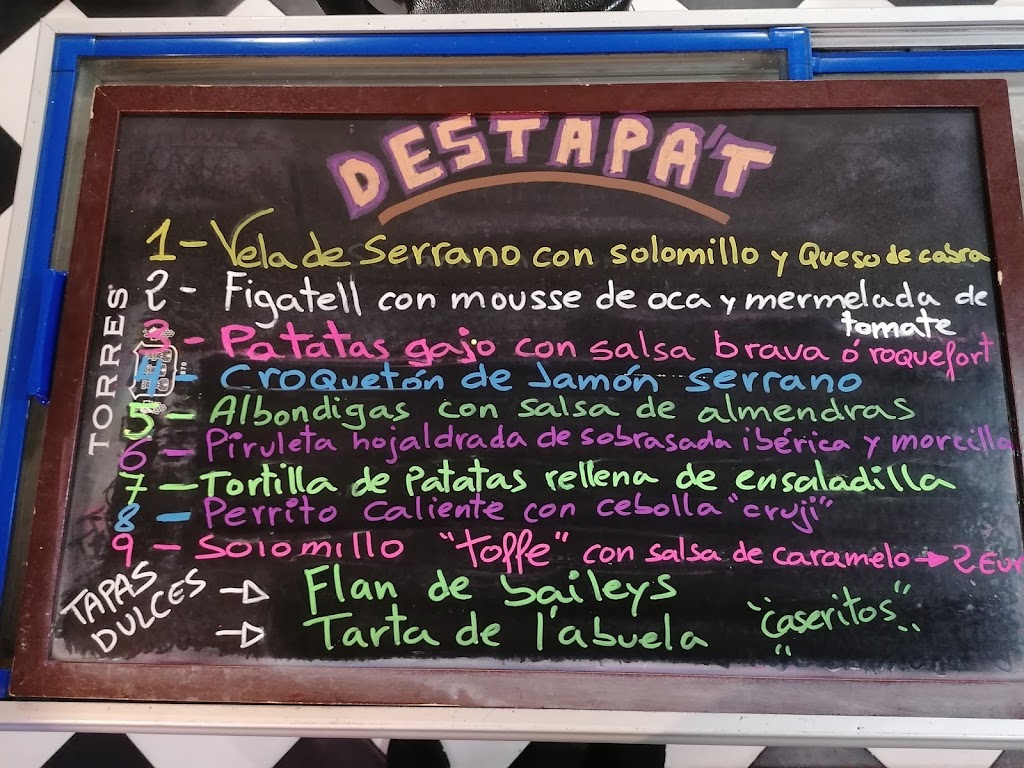 DESTAPA'T
TORRES
1- Vela de Serrano con solomillo y Queso de cabra
2- Figatell con mousse de oca y mermelada de
tomate
3- Patatas gajo con salsa brava ó roquefort
4- Croquetón de Jamón Serrano
5- Albondigas con salsa de almendras
6- Piruleta hojaldrada de sobrasada ibérica y morcilla
7- Tortilla de Patatas rellena de ensaladilla
8- Perrito caliente con cebolla "cruji"
9- Solomillo "toffe" con salsa de caramelo → 2 Eur
TAPAS DULCES → Flan de baileys
→ Tarta de l'abuela "caseritos"